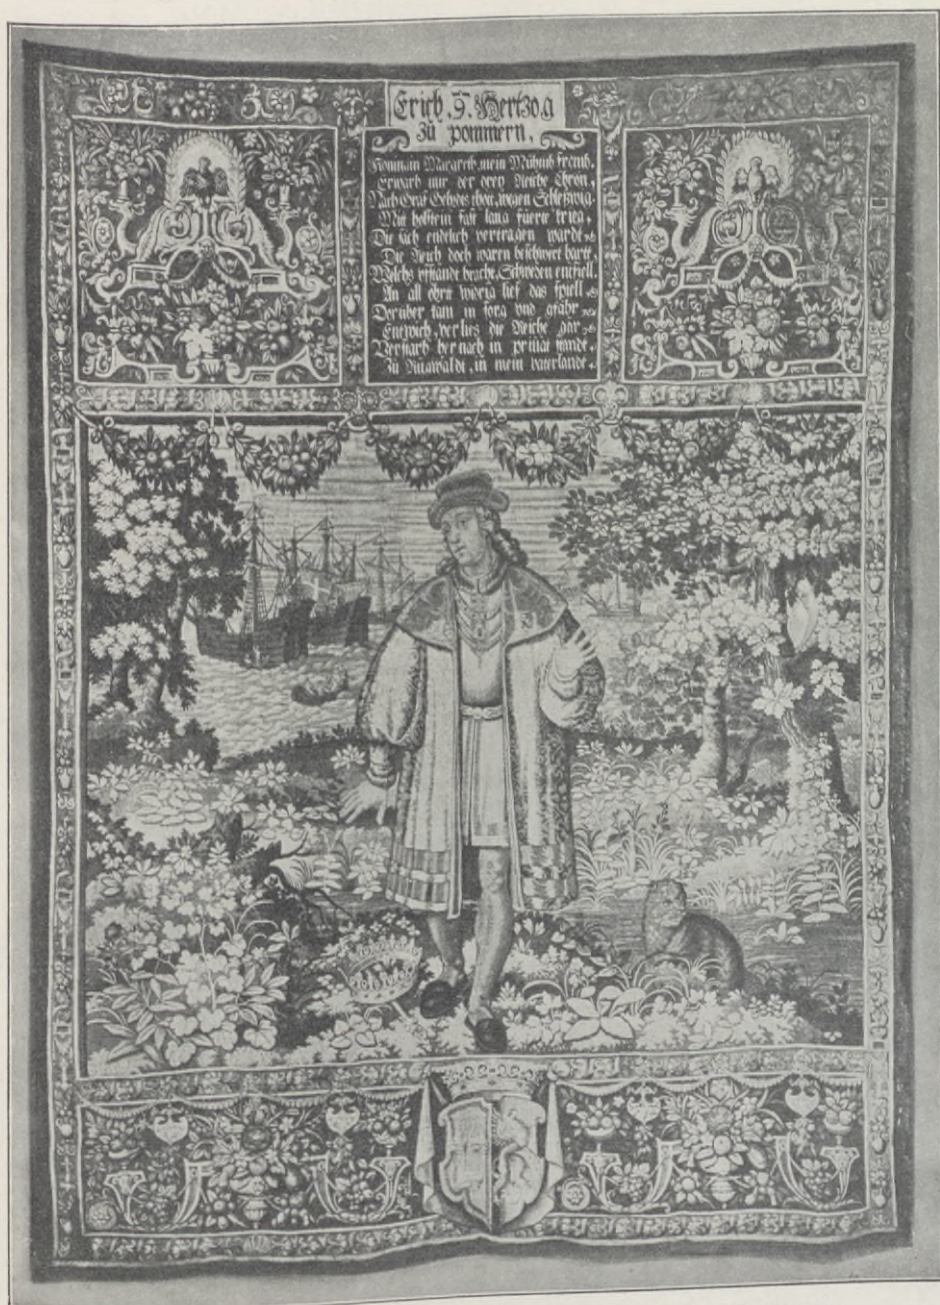 Erich .9. Hertzog
zü pommern.
Margreth mein
Erwarb mir der drey Reiche Chron,
Nach Graf thott, wegen Schleswig.
Mit holstein fast lang füerte krieg,
Die sich endtlich vertragen wardt
Die Reich doch waren beschwert hartt,
Welchs Schweden entfiell.
An all ehrn wideig lief das spiell
Dorüber kam in sorg vnd gfahr
Entwich, verlies die Reiche gar
Verstarb hernach in priuat stande.
Zu in mein vaterlande